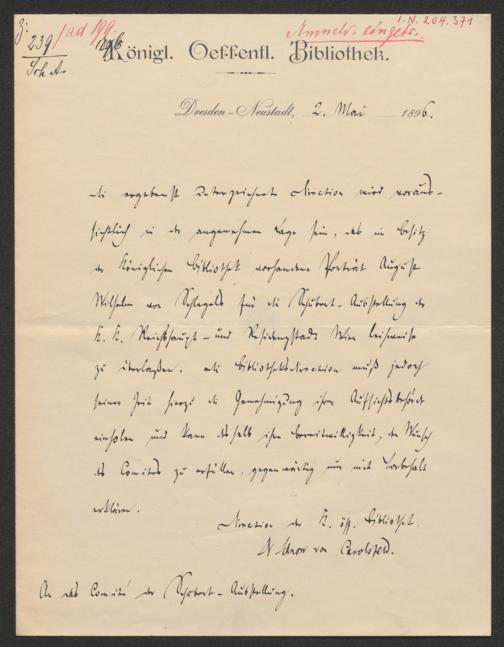 I.N. 204.371
Z: 239/ ad 199. Anmeld. eingetr.
1896
Sch A.
Königl. Oeffentl. Bibliothek.
Dresden-Neustadt, 2. Mai 1896.
Die ergebenst unterzeichnete Direction wird voraus-
sichtlich in der angenehmen Lage sein, das im Besitz
der Königlichen Bibliothek vorhandene Porträt August
Wilhelm von Schlegels für die Schubert-Ausstellung der
K. K. Reichshaupt- und Residenzstadt Wien leihweise
zu überlassen. Die Bibliotheksdirection muß jedoch
seiner Zeit hierzu die Genehmigung ihrer Aufsichtsbehörde
einholen und kann deshalb ihre Bereitwilligkeit, den Wunsch
des Comités zu erfüllen, gegenwärtig nur mit Vorbehalt
erklären.
Direction der K. öff. Bibliothek.
Schnorr von Carolsfeld.
An das Comité der Schubert-Ausstellung.